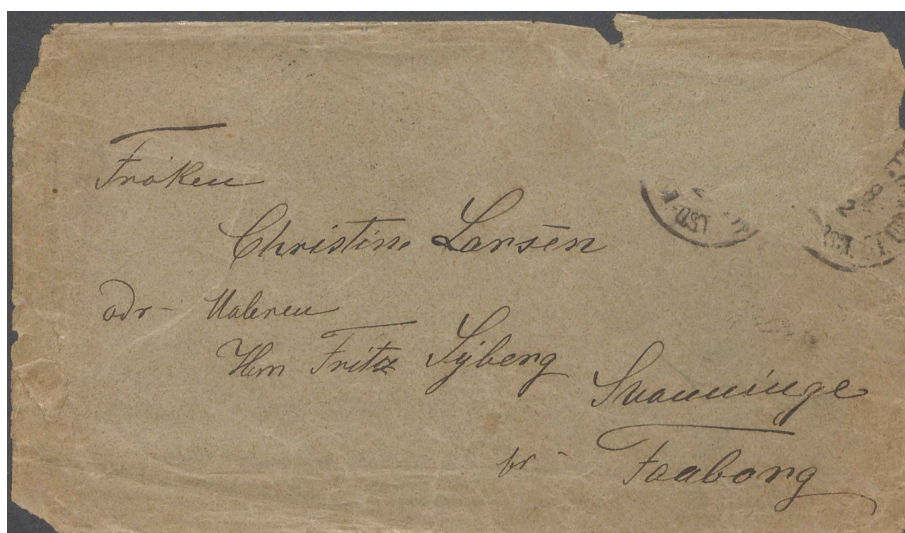 Frøken
Christine Larsen
adr - Maleren
Herr Fritz Syberg
Svanninge
pr -
Faaborg